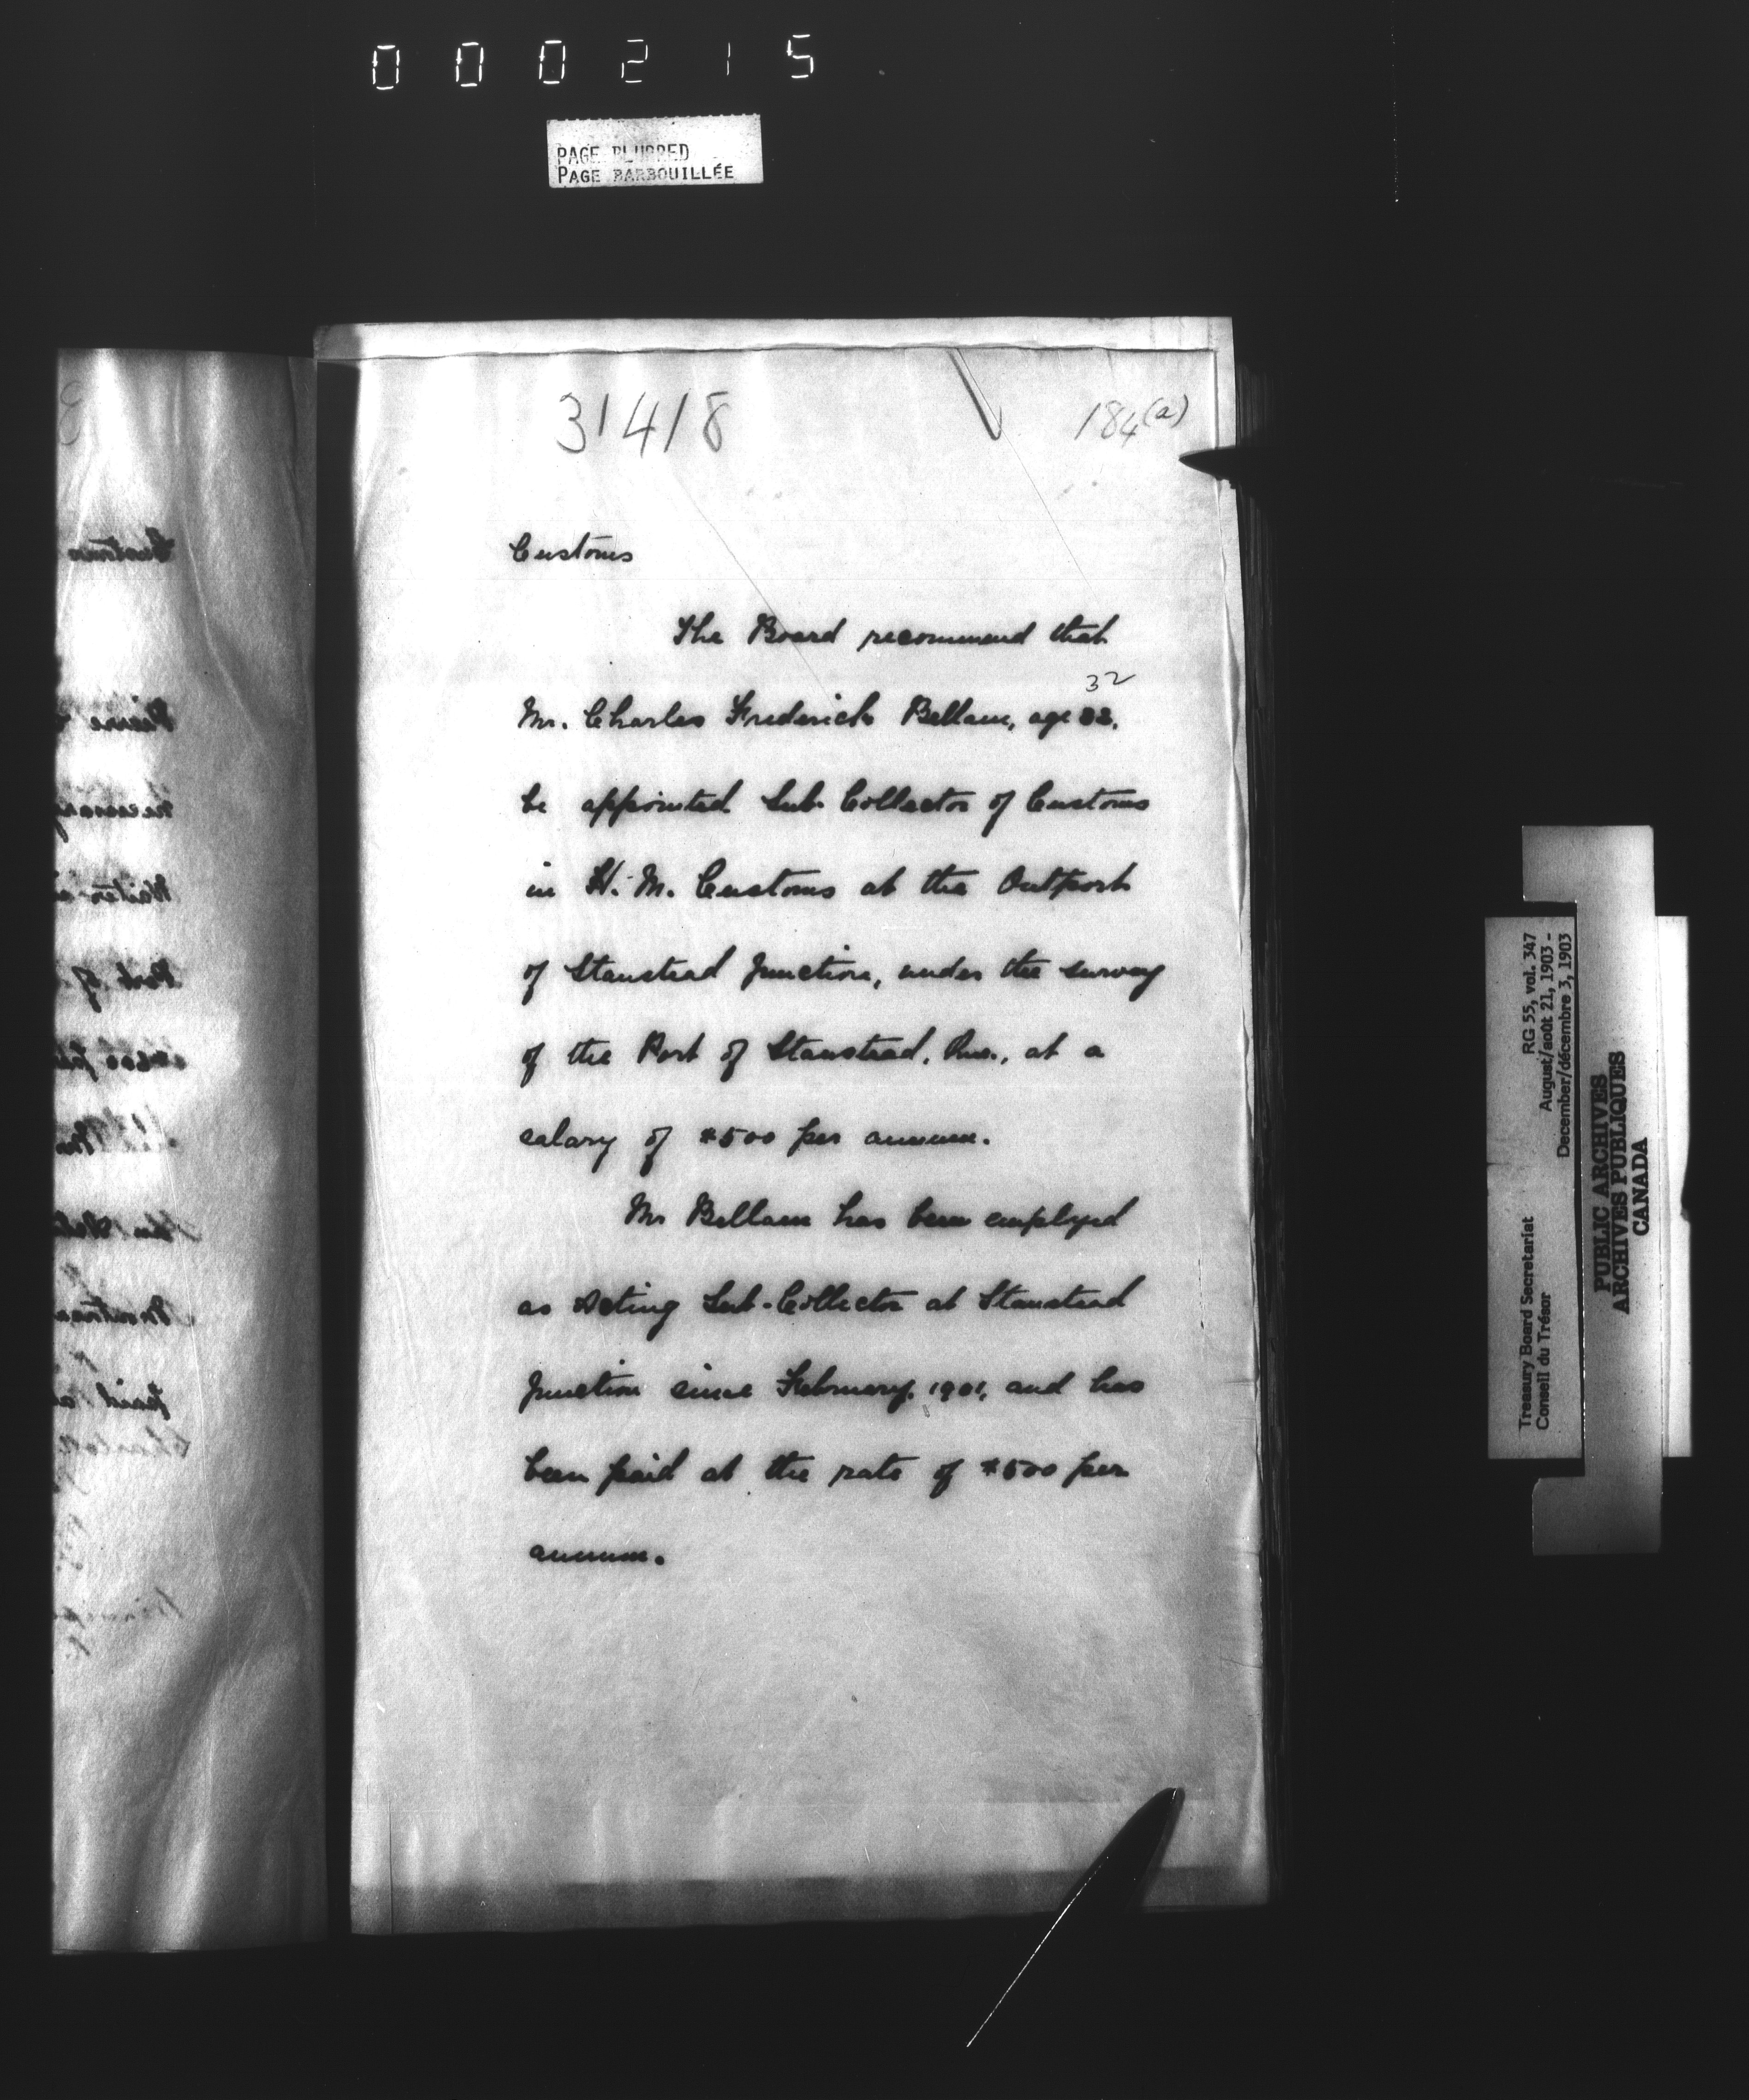 000215
PAGE BLURRED
PAGE BARBOUILLÉE
31418
184(a)
Customs
The Board recommend that
32
Mr. Charles Frederick Bellam, age 32,
be appointed Sub-Collector of Customs
in H. M. Customs at the Outport
of Stanstead Junction, under the survey
of the Port of Stanstead, Que., at a
salary of $500 per annum.
Mr Bellam has been employed
as Acting Sub-Collector at Stanstead
Junction since February, 1901, and has
been paid at the rate of $500 per
annum.
Treasury Board Secretariat RG 55, vol. 347
Conseil du Trésor August/août 21, 1903 -
December/décembre 3, 1903
PUBLIC ARCHIVES
ARCHIVES PUBLIQUES
CANADA